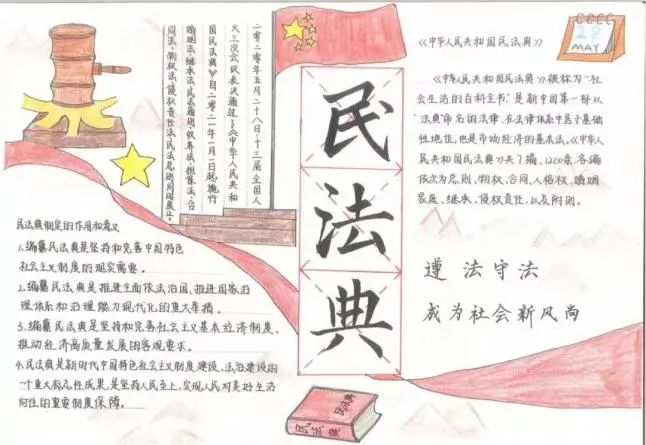 二零二零年五月二十八日,十三届全国人
大三次会议表决通过了《中华人民共和
国民法典》,自二零二一年一月一日起施行
婚姻法、继承法、民法通则、收养法、担保法、合
同法、物权法、侵权责任法、民法总则同时废止。
民
法
典
28
MAY
《中华人民共和国民法典》
《中华人民共和国民法典》被称为“社
会生活的百科全书”,是新中国第一部以
法典命名的法律,在法律体系中居于基础
性地位,也是市场经济的基本法。《中华人
民共和国民法典》共7编、1260条,各编
依次为总则、物权、合同、人格权、婚姻
家庭、继承、侵权责任,以及附则。
遵法守法
成为社会新风尚
民法典制定的作用和意义
1.编纂民法典是坚持和完善中国特色
社会主义制度的现实需要。
2.编纂民法典是推进全面依法治国、推进国家治
理体系和治理能力现代化的重大举措。
3.编纂民法典是坚持和完善社会主义基本经济制度、
推动经济高质量发展的客观要求。
4.民法典是新时代中国特色社会主义制度建设、法治建设的
一个重大标志性成果,是坚持人民至上、实现人民对美好生活
向往的重要制度保障。
民法典
民法典